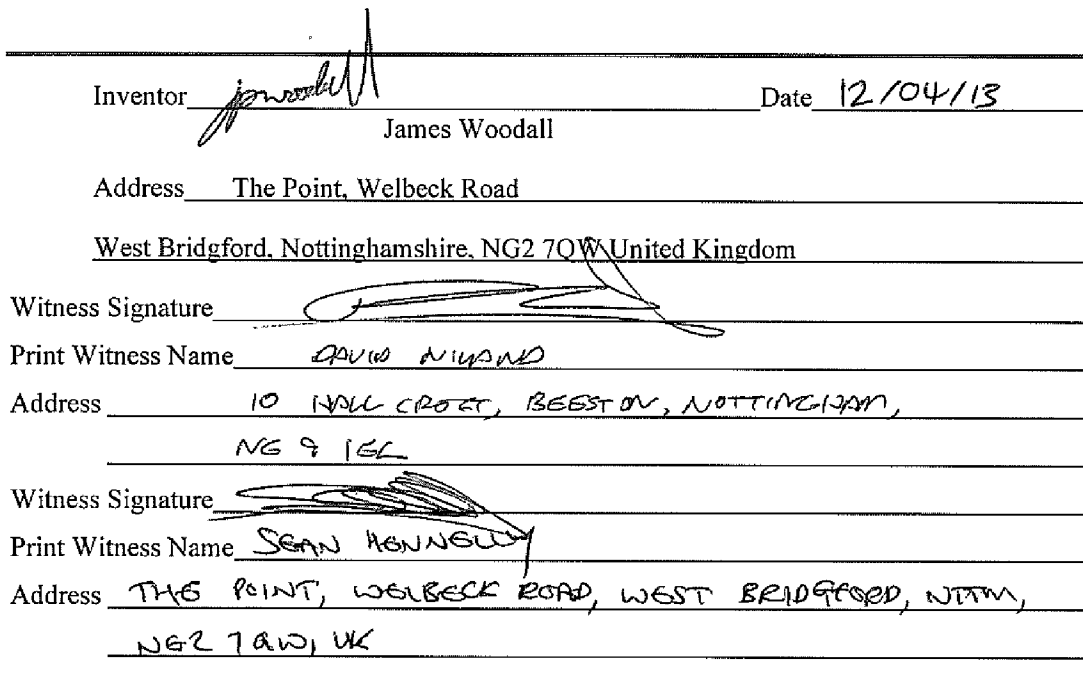 Inventor jpwoodall Date 12/04/13
James Woodall
Address The Point, Welbeck Road
West Bridgford, Nottinghamshire, NG2 7QW United Kingdom
Witness Signature
Print Witness Name DAVID NILAND
Address 10 HALL CROFT, BEESTON, NOTTINGHAM,
NG9 1EL
Witness Signature
Print Witness Name SEAN HENNELLY
Address THE POINT, WELBECK ROAD, WEST BRIDGFORD, NTTM,
NG2 7QW, UK